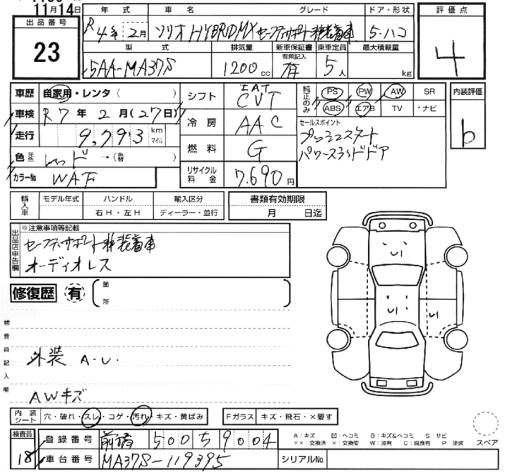 11月14日
出品番号 23
年式 R4年2月
車名 ソリオ HYBRID MX セーフティサポート非装着車
グレード
ドア・形状 5・ハコ
評価点 4
型式 5AA-MA37S
排気量 1200cc
新車保証書 有
乗車定員 5人
最大積載量 kg
車歴 自家用・レンタ( )
車検 R7年2月(27日)
走行 9,793 km マイル
色 (替 )
カラーNo. WAF
シフト IAT CVT
冷房 AAC
燃料 G
リサイクル料金 7,690円
純正のみ PS PW AW SR
ABS エアB TV ・ナビ
セールスポイント
プッシュスタート
パワースライドドア
内装評価 b
輸入車 モデル年式 年
ハンドル 右H・左H
輸入区分 ディーラー・並行
書類有効期限 月 日迄
出品店申告欄
※注意事項等記載
セーフティサポート非装着車
オーディオレス
修復歴 有 箇所
検査員記入欄
外装 A・U
AWキズ
内装シート 穴・破れ・スレ・コゲ・汚れ・キズ・黄ばみ
Fガラス キズ・飛石・×要す
スペア
検査員 18
登録番号 前橋 500 59004
車台番号 MA37S-119395
シリアルNo.